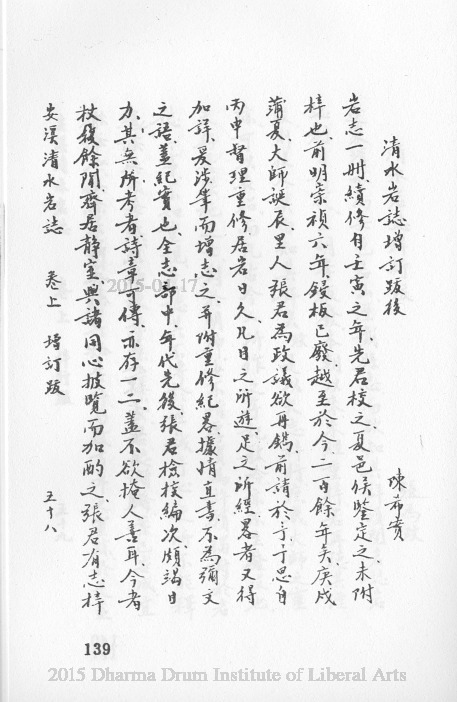 清水岩誌增訂跋後
陳希實
岩志一冊、續修自壬寅之年、先君校之、夏邑侯鑒定之、未附
梓也、前明崇禎六年、鋟板已廢、越至於今二百餘年矣、庚戌
蒲夏、大師誕辰、里人張君為政議欲再鐫、前請於予、予思自
丙申督理重修、居岩日久、凡目之所遊、足之所經、畧者又得
加詳、爰涉筆而增志之、并附重修紀畧、據情直書、不為彌文
之語、蓋紀實也、全志部中、年代先後、張君檢校編次、頗竭目
力、其無所考者、詩章可傳、亦存一二、蓋不欲掩人善耳、今者
杖履餘閒、齊居静室、與諸同心披覽而加酌之、張君有志梓
安溪清水岩誌　卷上　增訂跋　五十八
139
2015-03-17
2015 Dharma Drum Institute of Liberal Arts